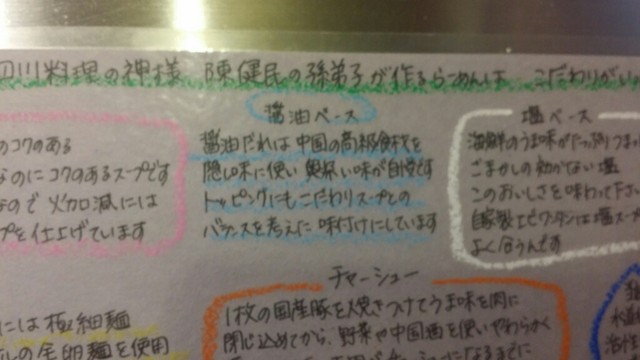 四川料理の神様 陳健民の孫弟子が作るらーめんは こだわりがい
のコクのある
なのにコクのあるスープです
なので 火加減には
プを仕上げています
醤油ベース
醤油だれは中国の高級食材を
隠し味に使い 奥深い味が自慢です
トッピングにもこだわりスープとの
バランスを考えた 味付けにしています
塩ベース
海鮮のうま味がたっぷりつまっ
ごまかしの効かない塩
このおいしさを味わって下さ
自家製エビワンタンは塩スー
よく合うんです
には極細麺
の全卵麺を使用
チャーシュー
1枚の国産豚を焼きつけてうま味を肉に
閉じ込めてから、野菜や中国酒を使いやわらかく